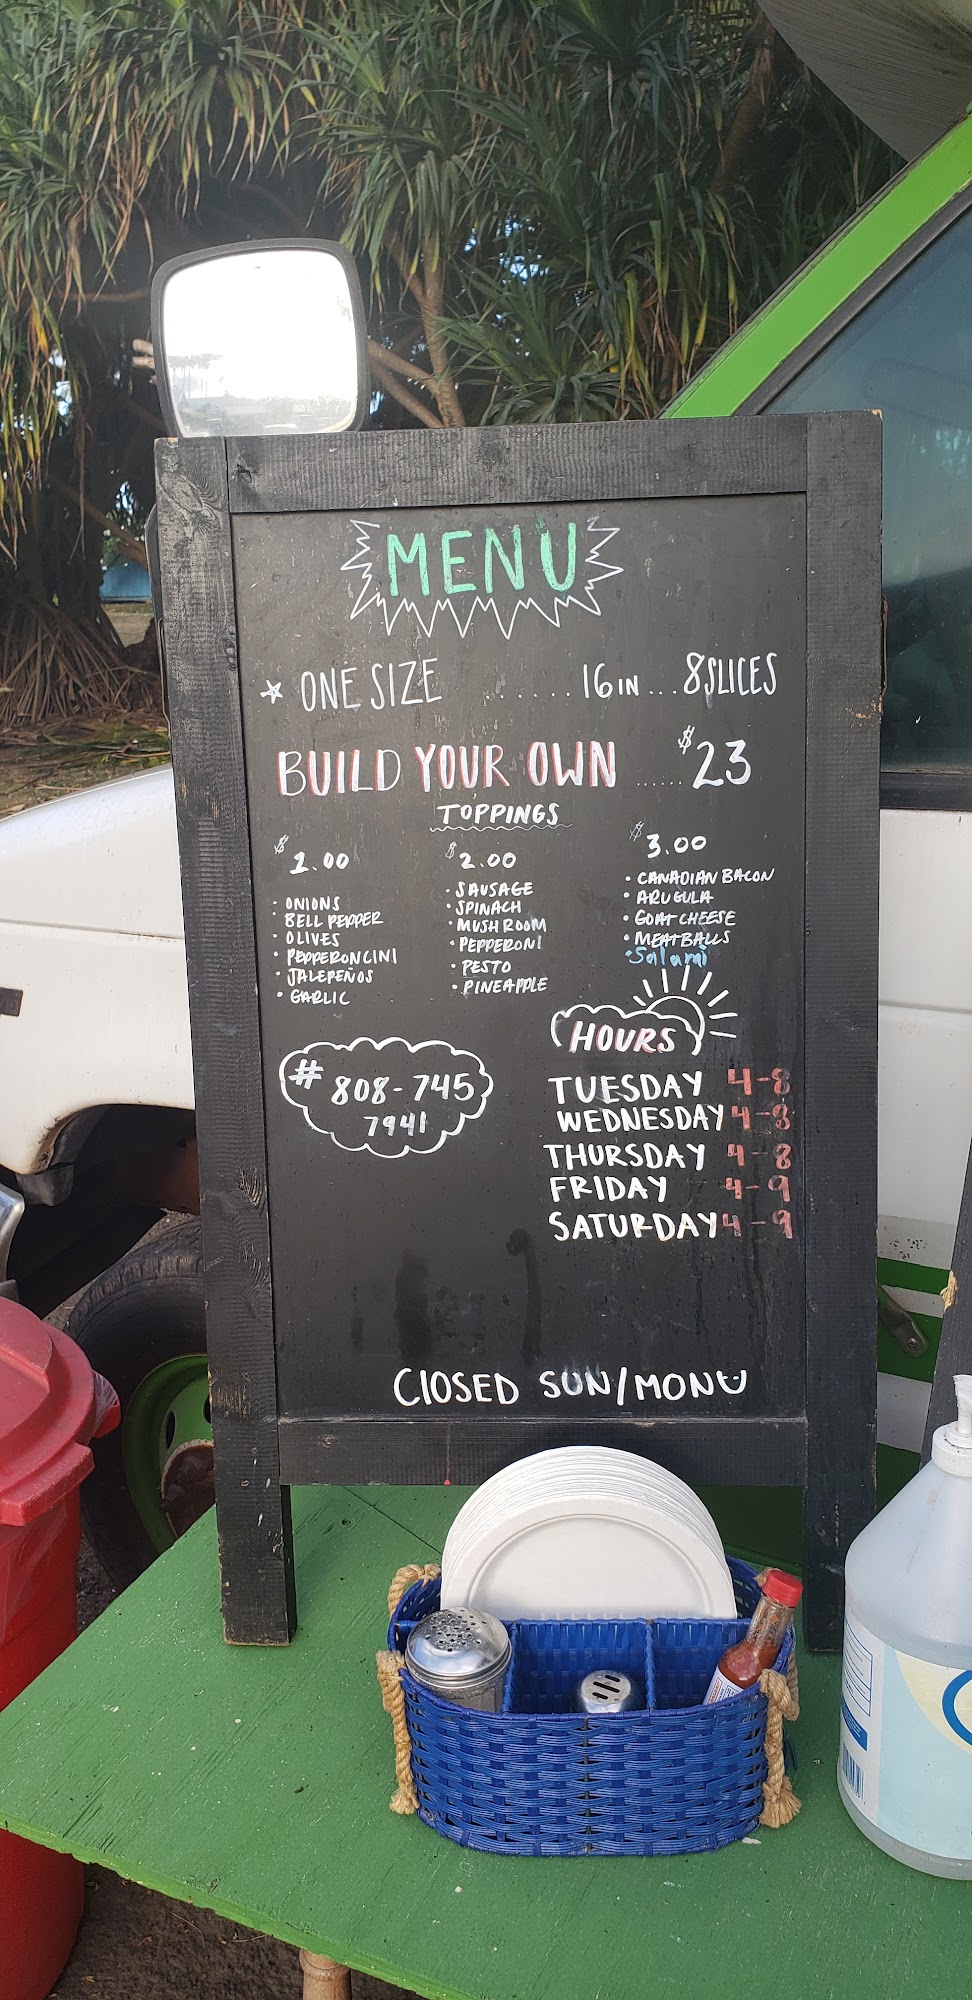 MENU
☆ ONE SIZE ........ 16 IN ... 8 SLICES
BUILD YOUR OWN ...... $23
TOPPINGS
$1.00
· ONIONS
· BELL PEPPER
· OLIVES
· PEPPERONCINI
· JALEPEÑOS
· GARLIC
$2.00
· SAUSAGE
· SPINACH
· MUSHROOM
· PEPPERONI
· PESTO
· PINEAPPLE
$3.00
· CANADIAN BACON
· ARUGULA
· GOAT CHEESE
· MEATBALLS
· Salami
# 808-745
7941
HOURS
TUESDAY 4-8
WEDNESDAY 4-8
THURSDAY 4-8
FRIDAY 4-9
SATURDAY 4-9
ClOSED SUN/MON